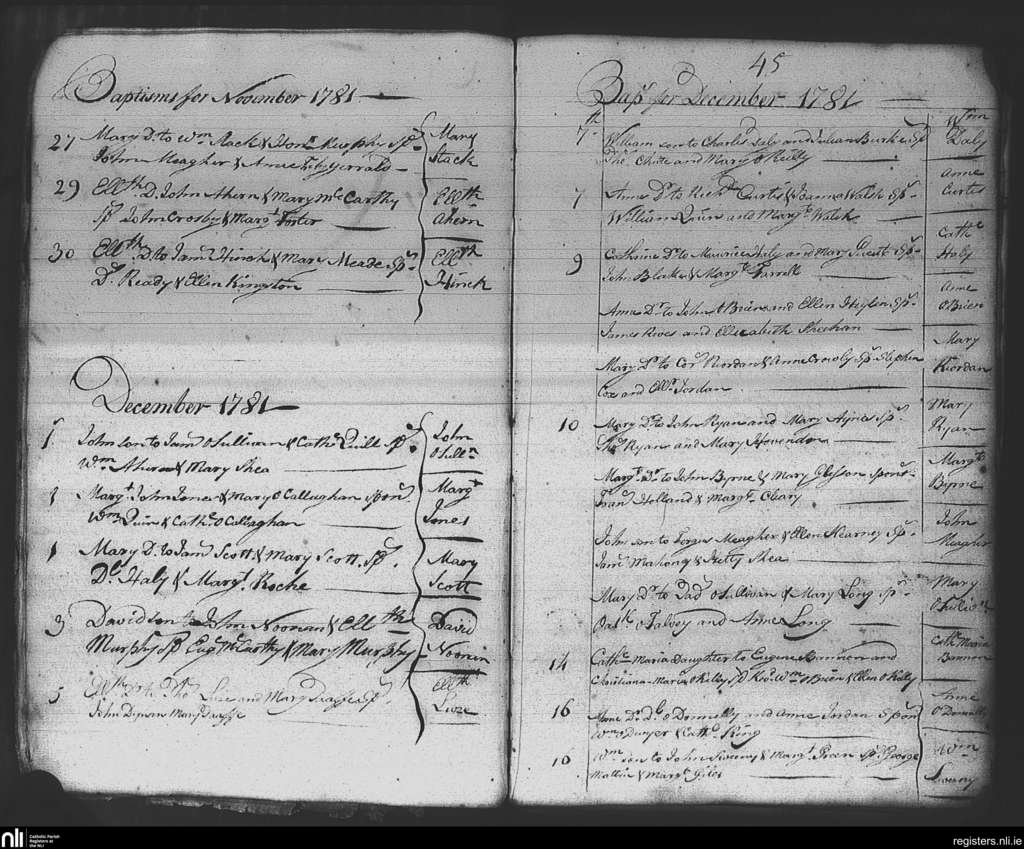 Baptisms for November 1781
27 Mary Dr. to Wm Stack & Honr. Murphy Sp.
John Meagher & Anne Fitzgerrald
Mary
Stack
29 Ellth D. John Ahern & Mary McCarthy
Sp John Crosby & Margt
Ellth
Ahern
30 Ellth D. to Jams & Mary Meade Sp.
Ready & Ellen Kingston
Ellth
December 1781
1 John son to Jams O Sullivan & Cathe Quill Sp.
Wm Ahern & Mary Shea
John
1 Margt John Jones & Mary O Callaghan
Wm Quin & Cathe O Callaghan
Margt
Jones
1 Mary D. to Jams Scott & Mary Scott. Sp.
Haly & Margt. Roche
Mary
Scott
3 David son to John Noonan & Ellth
Murphy Sp Eug McCarthy & Mary Murphy
David
Noonan
5 and Mary Sp.
John Mary
Ellth
45
Bap for December 1781
7th William son to Charles Daly and Burke Sp
White and Mary O Kelly
Wm
Daly
7 Anne Dr. to Richd Curtis & Joanna Walsh Sp.
William Quin and Mary Walsh
Anne
Curtis
9 Catherine Dr to Maurice Haly and Mary Sweet Sp.
John & Margt Farrell
Cathe
Haly
Anne Dr. to John O Brien and Ellen Sp.
James and Ellizabeth Sheehan
Anne
O Brien
Mary Dr to Cor Riordan & Anne Crowly Sp. Stephen
Cox and Elln. Jordan
Mary
Riordan
10 Mary Dr. to John Ryan and Mary Sp.
Ryan and Mary Hovendon
Mary
Ryan
Margt. Dr. to John Byrne & Mary Gleeson
Holland & Margt. Cleary
Margt
Byrne
John son to Meagher & Ellen Kearney Sp.
Jams Mahony & Shea
John
Meagher
Mary Dr to O Sullivan & Mary Long Sp.
O Falvey and Anne Long
Mary
14 Cathe Maria Daughter to Eugene Bannon and
Christiana Maria O Kelly Sp. Wm O Brien & Ellen O Kelly
Cathe Maria
Bannon
16 Anne Dr. O Donnelly and Anne Jordan
Wm O Dwyer & Cathe King
Anne
O Donnelly
16 Wm son to John Sweeny & Margt. Green Sp. George
& Margt Giles
Wm
Sweeny
nli
Catholic Parish
Registers at
the NLI
registers.nli.ie